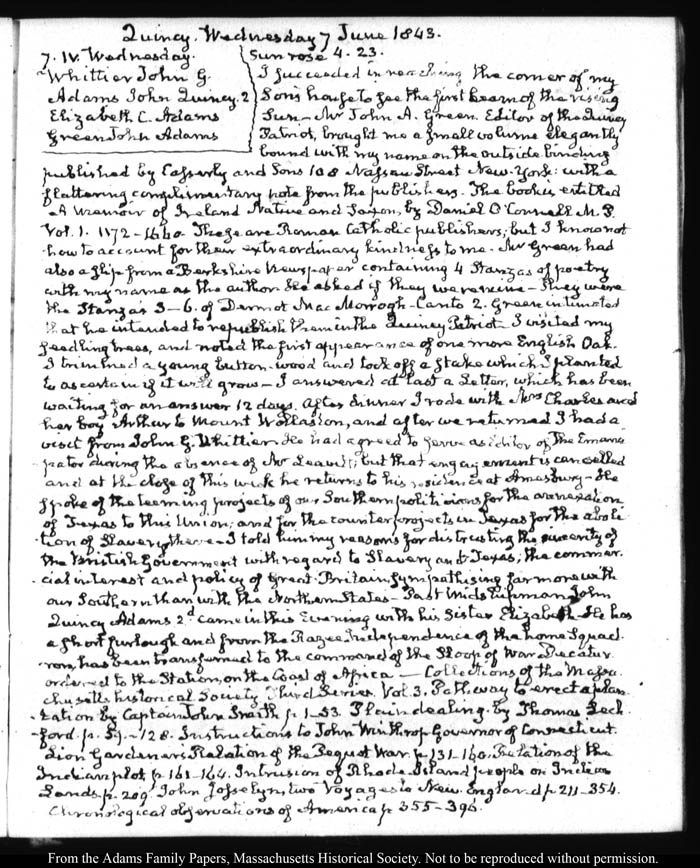 Quincy. Wednesday 7 June 1843.
7. IV. Wednesday.
Whittier John G.
Adams John Quincy. 2
Elizabeth C. Adams
Green John Adams
Sun rose 4. 23.
I succeeded in reaching the corner of my
Son's house to see the first beam of the rising
Sun — Mr John A. Green. Editor of the Quincy
Patriot, brought me a small volume elegantly
bound with my name on the outside binding
published by Casserly and Sons 108 Nassau Street New-York: with a
flattering complimentary note from the publishers. The book is entitled
A Memoir of Ireland Native and Saxon, by Daniel O'Connell M. P.
Vol. 1. 1172 - 1660. These are Roman Catholic publishers, but I know not
how to account for their extraordinary kindness to me. Mr Green had
also a slip from a Berkshire Newspaper containing 4 Stanzas of poetry
with my name as the author. He asked if they were mine — They were
the Stanzas 3-6. of Dermot Mac Morrogh - Canto 2. Green intimated
that he intended to republish them in the Quincy Patriot. I visited my
seedling trees, and noted the first appearance of one more English Oak.
I trimmed a young button-wood and took off a stake which I planted
to ascertain if it will grow — I answered at last a Letter, which has been
waiting for an answer 12 days. After dinner I rode with Mrs Charles and
her boy Arthur to Mount Wollaston, and after we returned I had a
visit from John G. Whittier. He had agreed to serve as Editor of The Emanci-
pator during the absence of Mr Leavitt; but that engagement is cancelled
and at the close of this week he returns to his residence at Amesbury - He
spoke of the teeming projects of our Southern politicians for the annexation
of Texas to this Union; and for the counter projects in Texas for the aboli-
tion of Slavery there — I told him my reasons for distrusting the sincerity of
the British Government with regard to Slavery and Texas; the commer-
cial interest and policy of Great-Britain sympathising far more with
our Southern than with the Northern States - Past Midshipman John
Quincy Adams 2d came in this Evening with his Sister Elizabeth - He has
a short furlough and from the Razee Independence of the home Squad-
ron, has been transferred to the command of the Sloop of War Decatur
ordered to the Station, on the Coast of Africa — Collections of the Massa-
chusetts historical Society Third Series. Vol. 3. Pathway to erect a plan-
tation by Captain John Smith p 1-53. Plain dealing by Thomas Lech-
ford. p. 54 - 128. Instructions to John Winthrop Governor of Connecticut.
Lion Gardener's Relation of the Pequot War. p 131-160. Relation of the
Indian plot p 161-164. Intrusion of Rhode-Island people on Indian
Lands p. 209. John Josselyn, two Voyages to New-England p 211-354.
Chronological observations of America p 355-396.
From the Adams Family Papers, Massachusetts Historical Society. Not to be reproduced without permission.